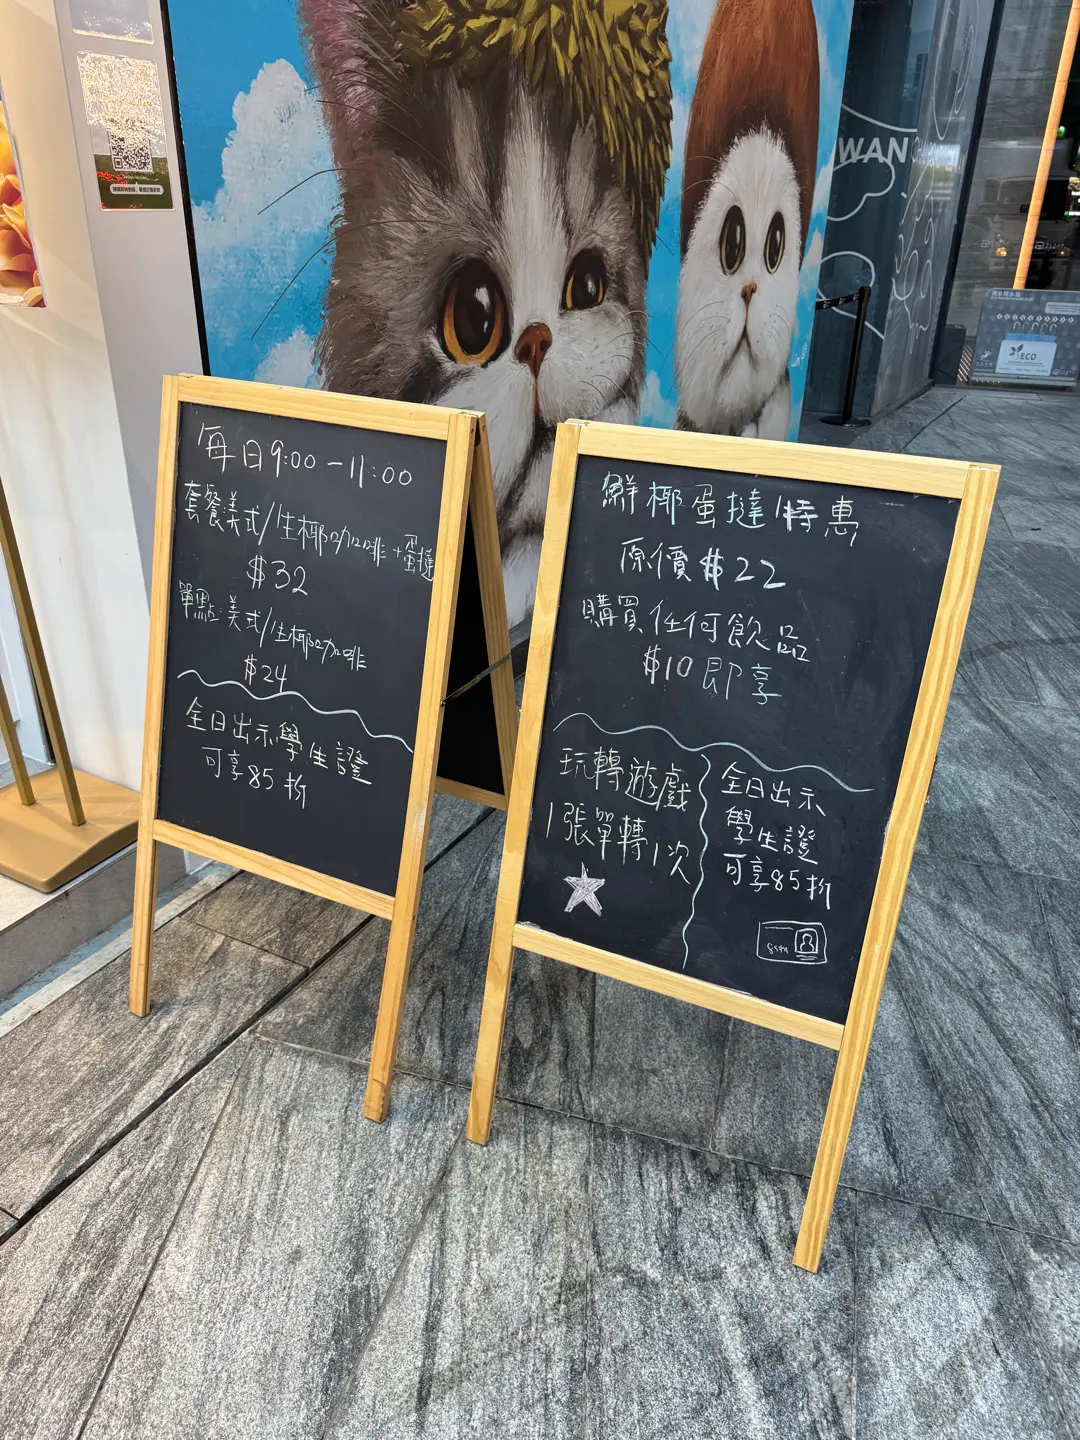 每日9:00-11:00
套餐:美式/生椰咖啡+蛋撻
$32
單點:美式/生椰咖啡
$24
全日出示學生證
可享85折
鮮椰蛋撻特惠
原價$22
購買任何飲品
$10即享
玩轉遊戲
1張單轉1次
全日出示
學生證
可享85折
WAN
ECO